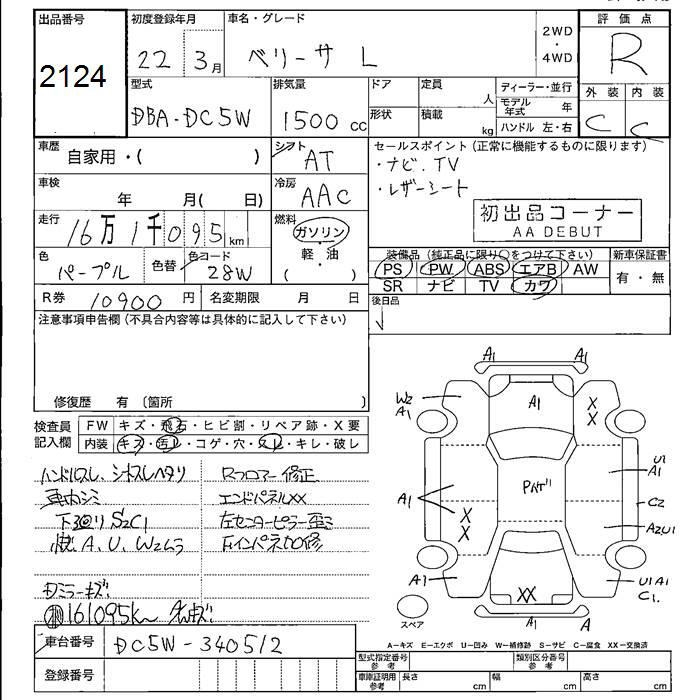 出品番号
2124
初度登録年月
22 3月
車名・グレード
ベリーサ L
2WD
・
4WD
評価点
R
型式
DBA-DC5W
排気量
1500 cc
ドア
形状
定員
人
積載
kg
ディーラー・並行
モデル年式 年
ハンドル 左・右
外装 内装
C C
車歴
自家用・( )
シフト
AT
セールスポイント(正常に機能するものに限ります)
・ナビ.TV
・レザーシート
車検
年 月( 日)
冷房
AAC
初出品コーナー
AA DEBUT
走行
16万1千095km
燃料
ガソリン
・
軽・油
( )
色
パープル
色替
色コード
28W
装備品(純正品に限り○をつけて下さい)
PS PW ABS エアB AW
SR ナビ TV カワ
新車保証書
有・無
R券 10900 円
名変期限 月 日
後日品
注意事項申告欄(不具合内容等は具体的に記入して下さい)
修復歴 有 〔箇所 〕
検査員記入欄
FW キズ・飛石・ヒビ割・リペア跡・X要
内装 キズ・汚レ・コゲ・穴・スレ・キレ・破レ
ハンドルスレ、シートスレヘタリ
Rフロアー修正
車内シミ
エンドパネルXX
下廻りS2C1
左センターピラー歪ミ
A、U、W2ムラ
ミラーキズ
161095km
車台番号 DC5W-340512
登録番号
A1
A1
W2
A1
A1
X
X
U1
A1
A1
X
X
C2
A2U1
A1
XX
U1A1
C1.
A1
A
スペア
A-キズ E-エクボ U-凹み W-補修跡 S-サビ C-腐食 XX-交換済
型式指定番号
参考
類別区分番号
参考
車庫証明用
参考
長さ cm
幅 cm
高さ cm